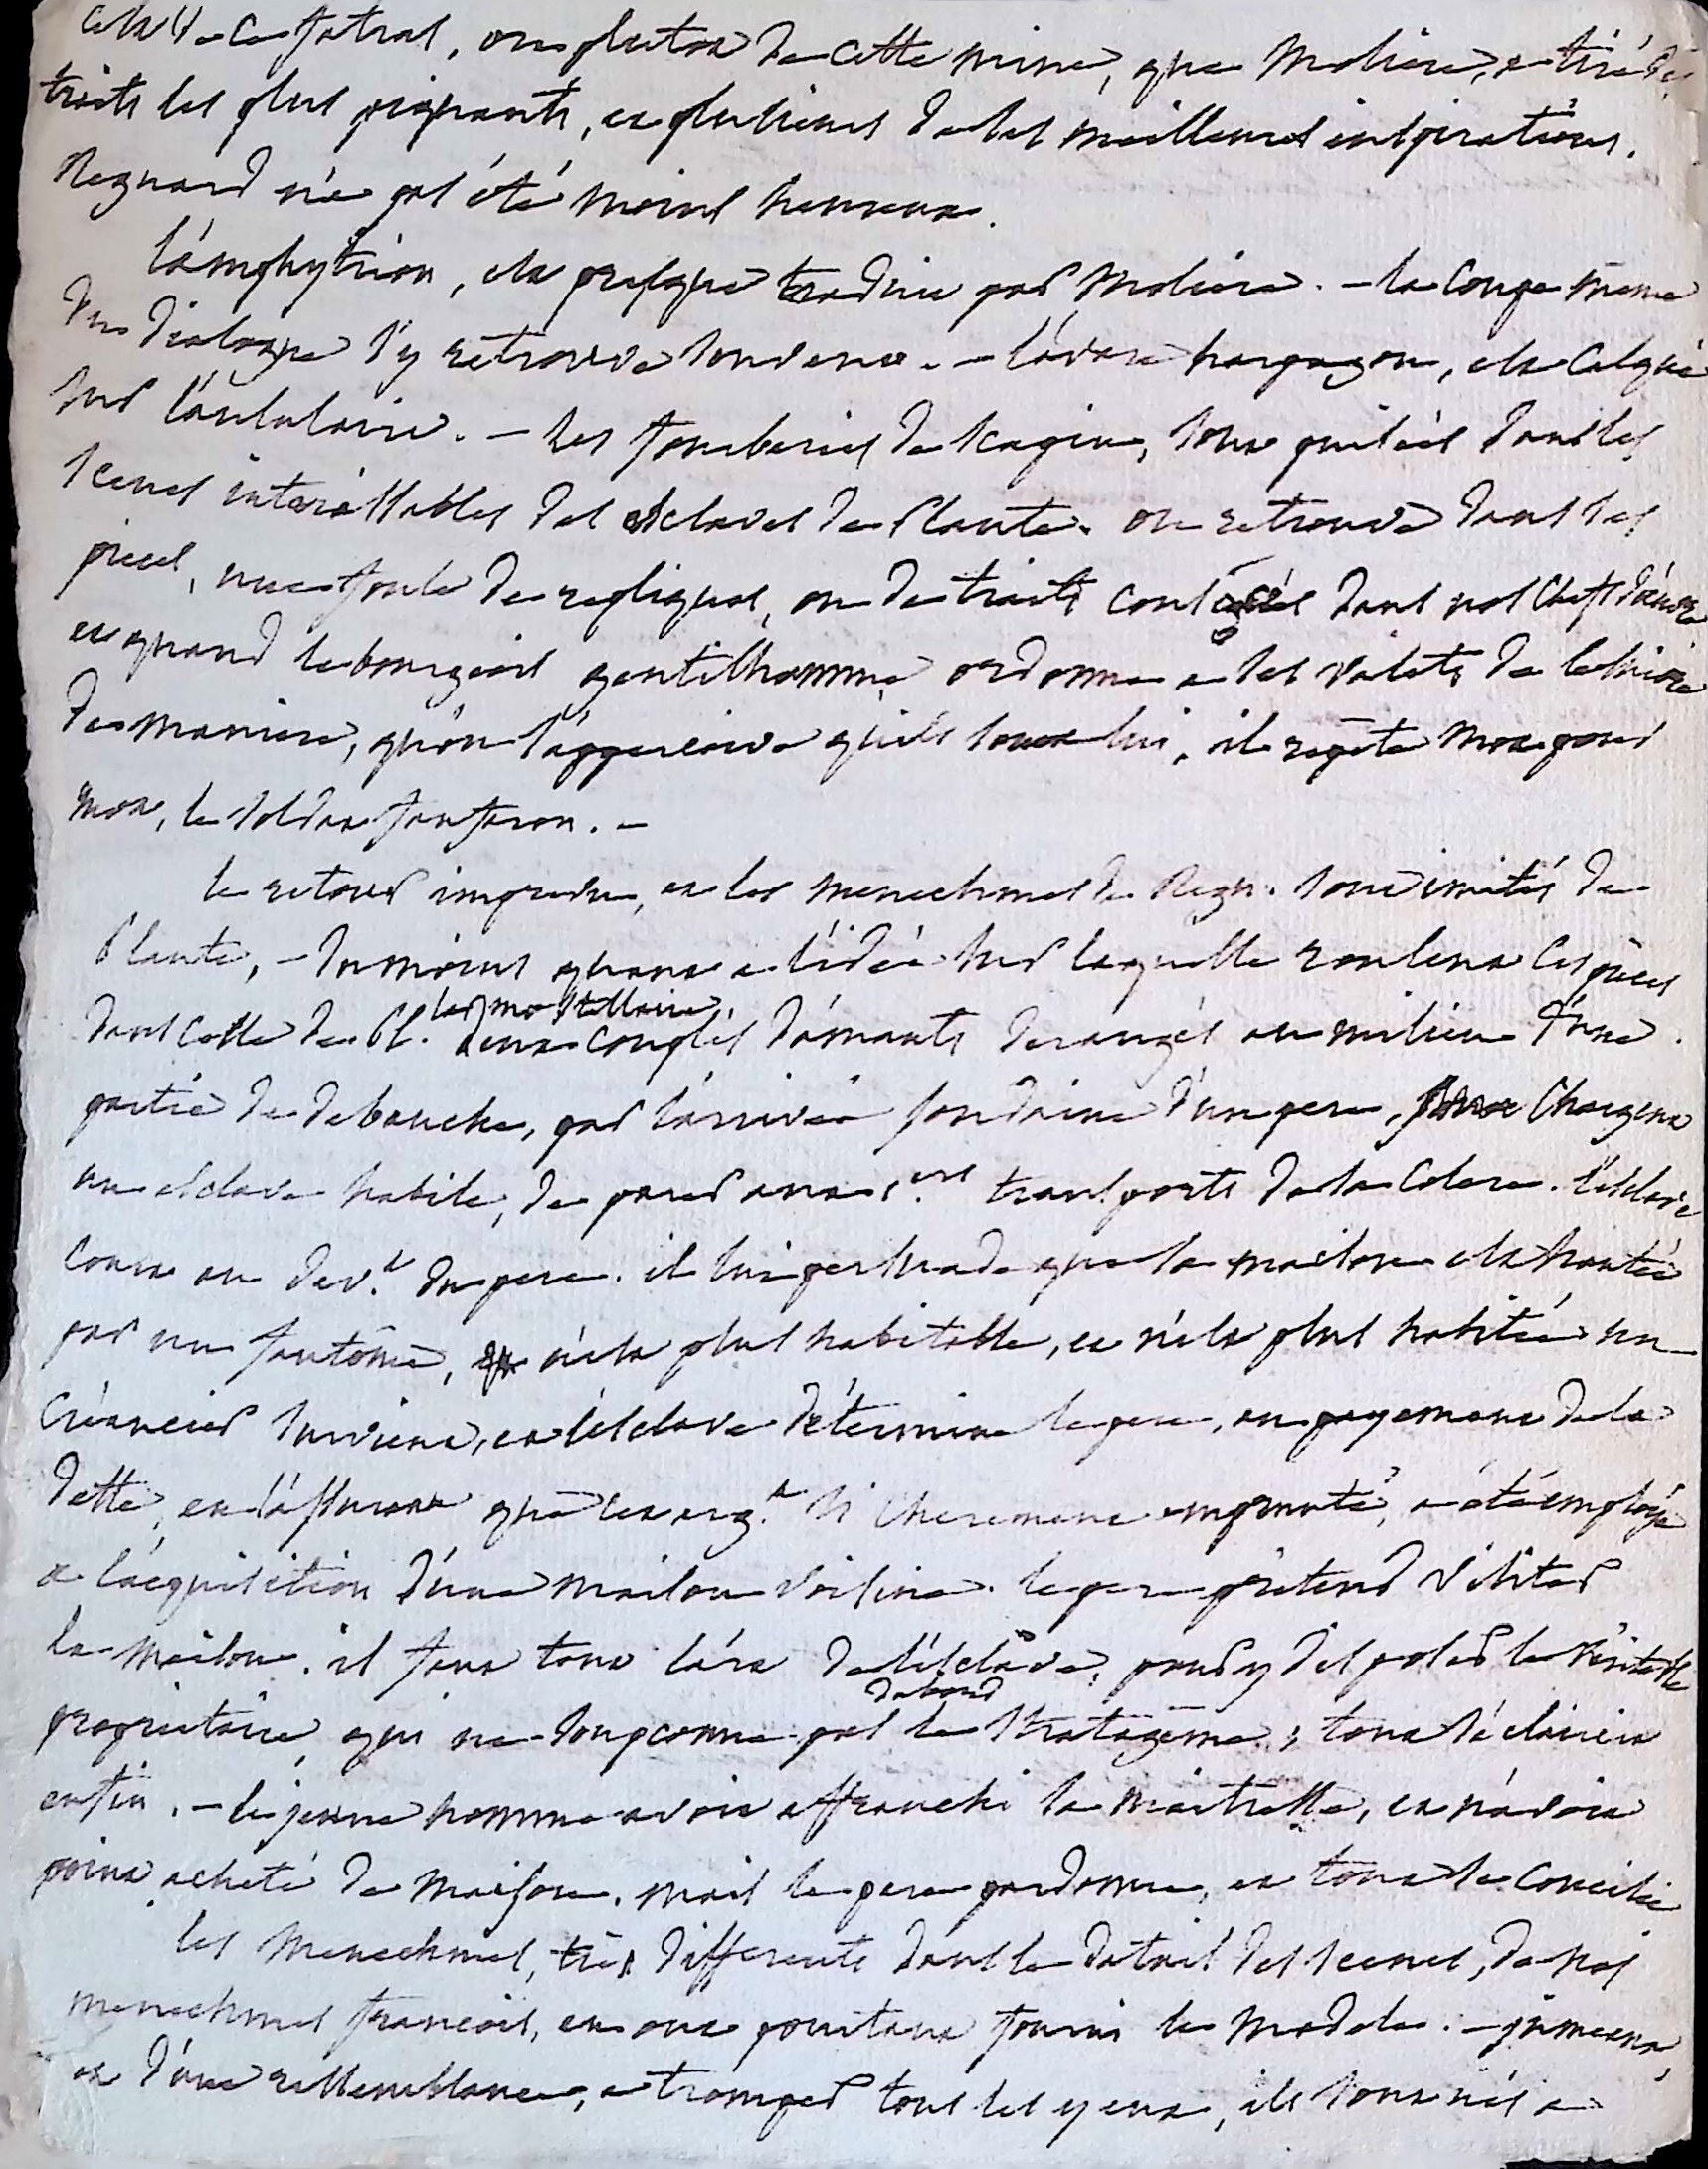 c'est de ce fatras, ou plutot de cette mine, que Moliere, a tiré des
traits les plus piquants, et plusieurs de ses meilleures inspirations.
Regnard n'a pas été moins heureux.
l'amphytrion, est presque traduit par Moliere. - la coupe meme
du dialogue s'y retrouve souvent. - l'avare harpagon, est calqué
sur l'aululaire. - les fourberies de scapin, sont puisées dans les
scenes intarissables des esclaves de Plaute. on retrouve dans ses
pieces, une foule de repliques, ou de traits consacrés dans nos chefs d'œuvre
et quand le bourgeois gentilhomme ordonne a ses valets de le suivre
de maniere, qu'on s'apperçoive qu'ils sont a lui, il repete mot pour
mot, le soldat fanfaron. -
le retour imprevu, et les menechmes de Regn. sont imités de
Plaute, - du moins quant a l'idée sur laquelle roulent ces pieces
dans celle de Pl. la mostellaire deux couples d'amants derangés au milieu d'une
partie de debauche, par l'arrivée soudaine d'un pere, chargent
un esclave habile, de parer aux 1.ers transports de sa colere. l'esclave
court au dev.t du pere. il lui persuade que sa maison est hantée
par un fantôme, n'est plus habitable, et n'est plus habitée un
créancier survient, et l'esclave détermine le pere, au payement de la
dette, en l'assurant que cet arg.t si cherement emprunté, a été employé
a l'acquisition d'une maison voisine. le pere pretend visiter
la maison. il faut tout l'art de l'esclave, pour y disposer le véritable
propriétaire, qui ne soupconne pas d'abord le stratagême ; tout s'éclaircit
enfin. - le jeune homme avoit affranchi sa maitresse, et n'avoit
point acheté de maison. mais le pere pardonne, et tout se concilie
les menechmes, très differents dans le detail des scenes, de nos
menechmes francois, en ont pourtant fourni le modele. - jumeaux,
et d'une ressemblance, a tromper tous les yeux, ils sont nés a